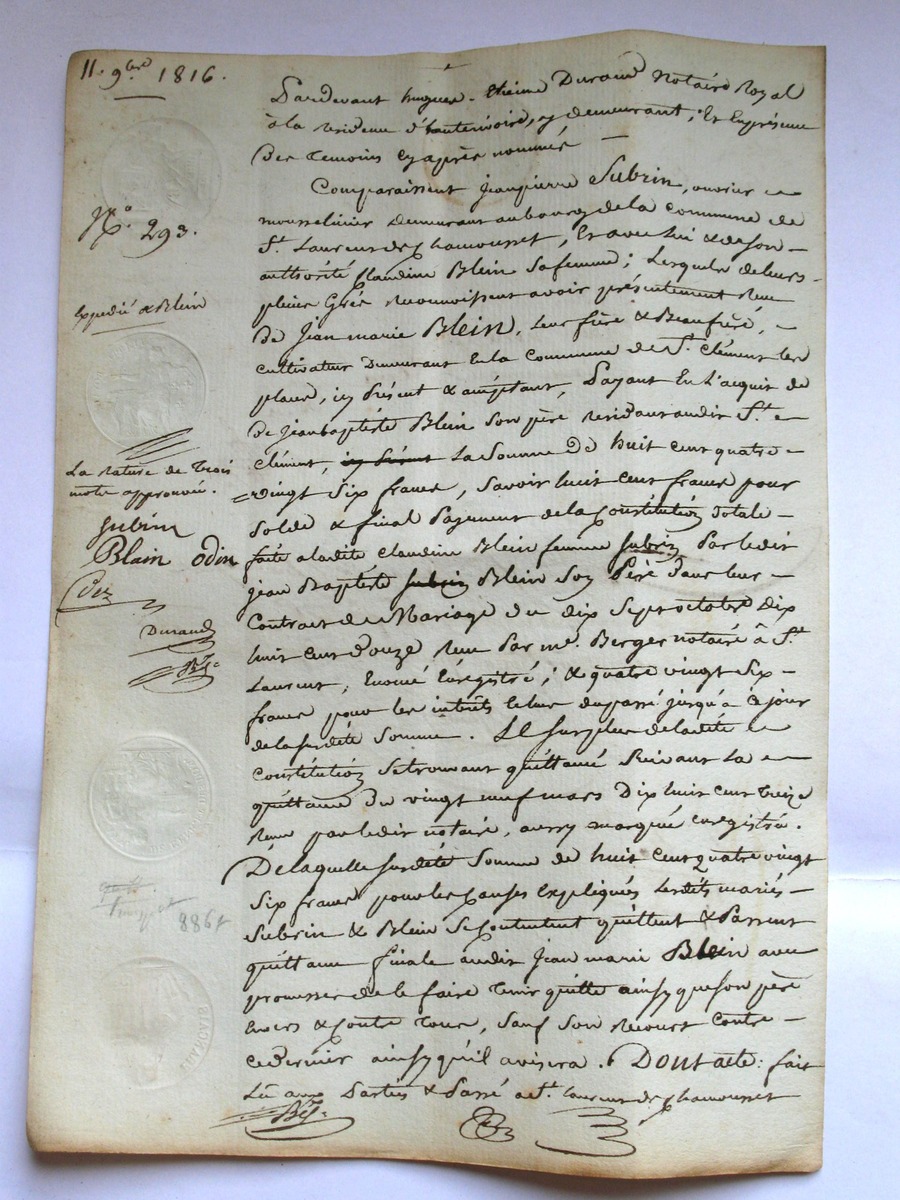 11. 9bre 1816.
N.º 293.
Expedié a Blein
La rature de trois
mots approuvée.
Subrin
Blain odin
Durand
Pardevant hugues-Etienne Durand Notaire Royal
à la residence d'hauterivoire, y demeurant ; Et En présence
Des temoins Cy après nommés —
Comparaissent Jeanpierre Subrin, ouvrier
mousselinier demeurant au bourg de la commune de
St. Laurent de Chamousset, Et avec lui & de son
authorité Claudine Blein sa femme ; Lesquels de leurs
pleins Grés reconnoissent avoir présentement Reçu
De Jean marie Blein, leur frère & Beaufrère,
cultivateur Demeurant En la commune de St. Clément les
places, icy présent & acceptant, Payant En l'acquit de
De Jean baptiste Blein son père residant audit St.
Clément, icy présent La Somme de huit cent quatre
vingt Six francs, Savoir huit cent francs pour
Solde & final Payement de la Constitution totale
faite a ladite Claudine Blein femme Subrin Par ledit
jean Baptiste Subrin Blein Son Père dans leur
Contrat de Mariage du dix Sept octobre Dix
huit cent Douze Reçu Par me. Berger notaire à St.
Laurent, Enoncé Enregistré ; & quatre vingt Six
francs pour les intérêts du passé jusqu'à ce jour
de la susdite Somme. Le Surplus de ladite
Constitution Se trouvant quittancé Suivant la
quittance du vingt neuf mars Dix huit cent treize
Reçue par ledit notaire, aussy marquée enregistrée.
De laquelle susdite Somme de huit cent quatre vingt
Six francs pour les Causes Expliqués Lesdits mariés
Subrin & Blein Se Contentent quittent & Passent
quittance finale audit Jean marie Blein avec
promesse de le faire tenir quitte ainsy que son père
Envers & Contre tous, Sauf Son recours contre
ce dernier ainsy qu'il avisera. Dont acte : fait
Lu aux Parties & Passé a St. Laurent de Chamousset
886f